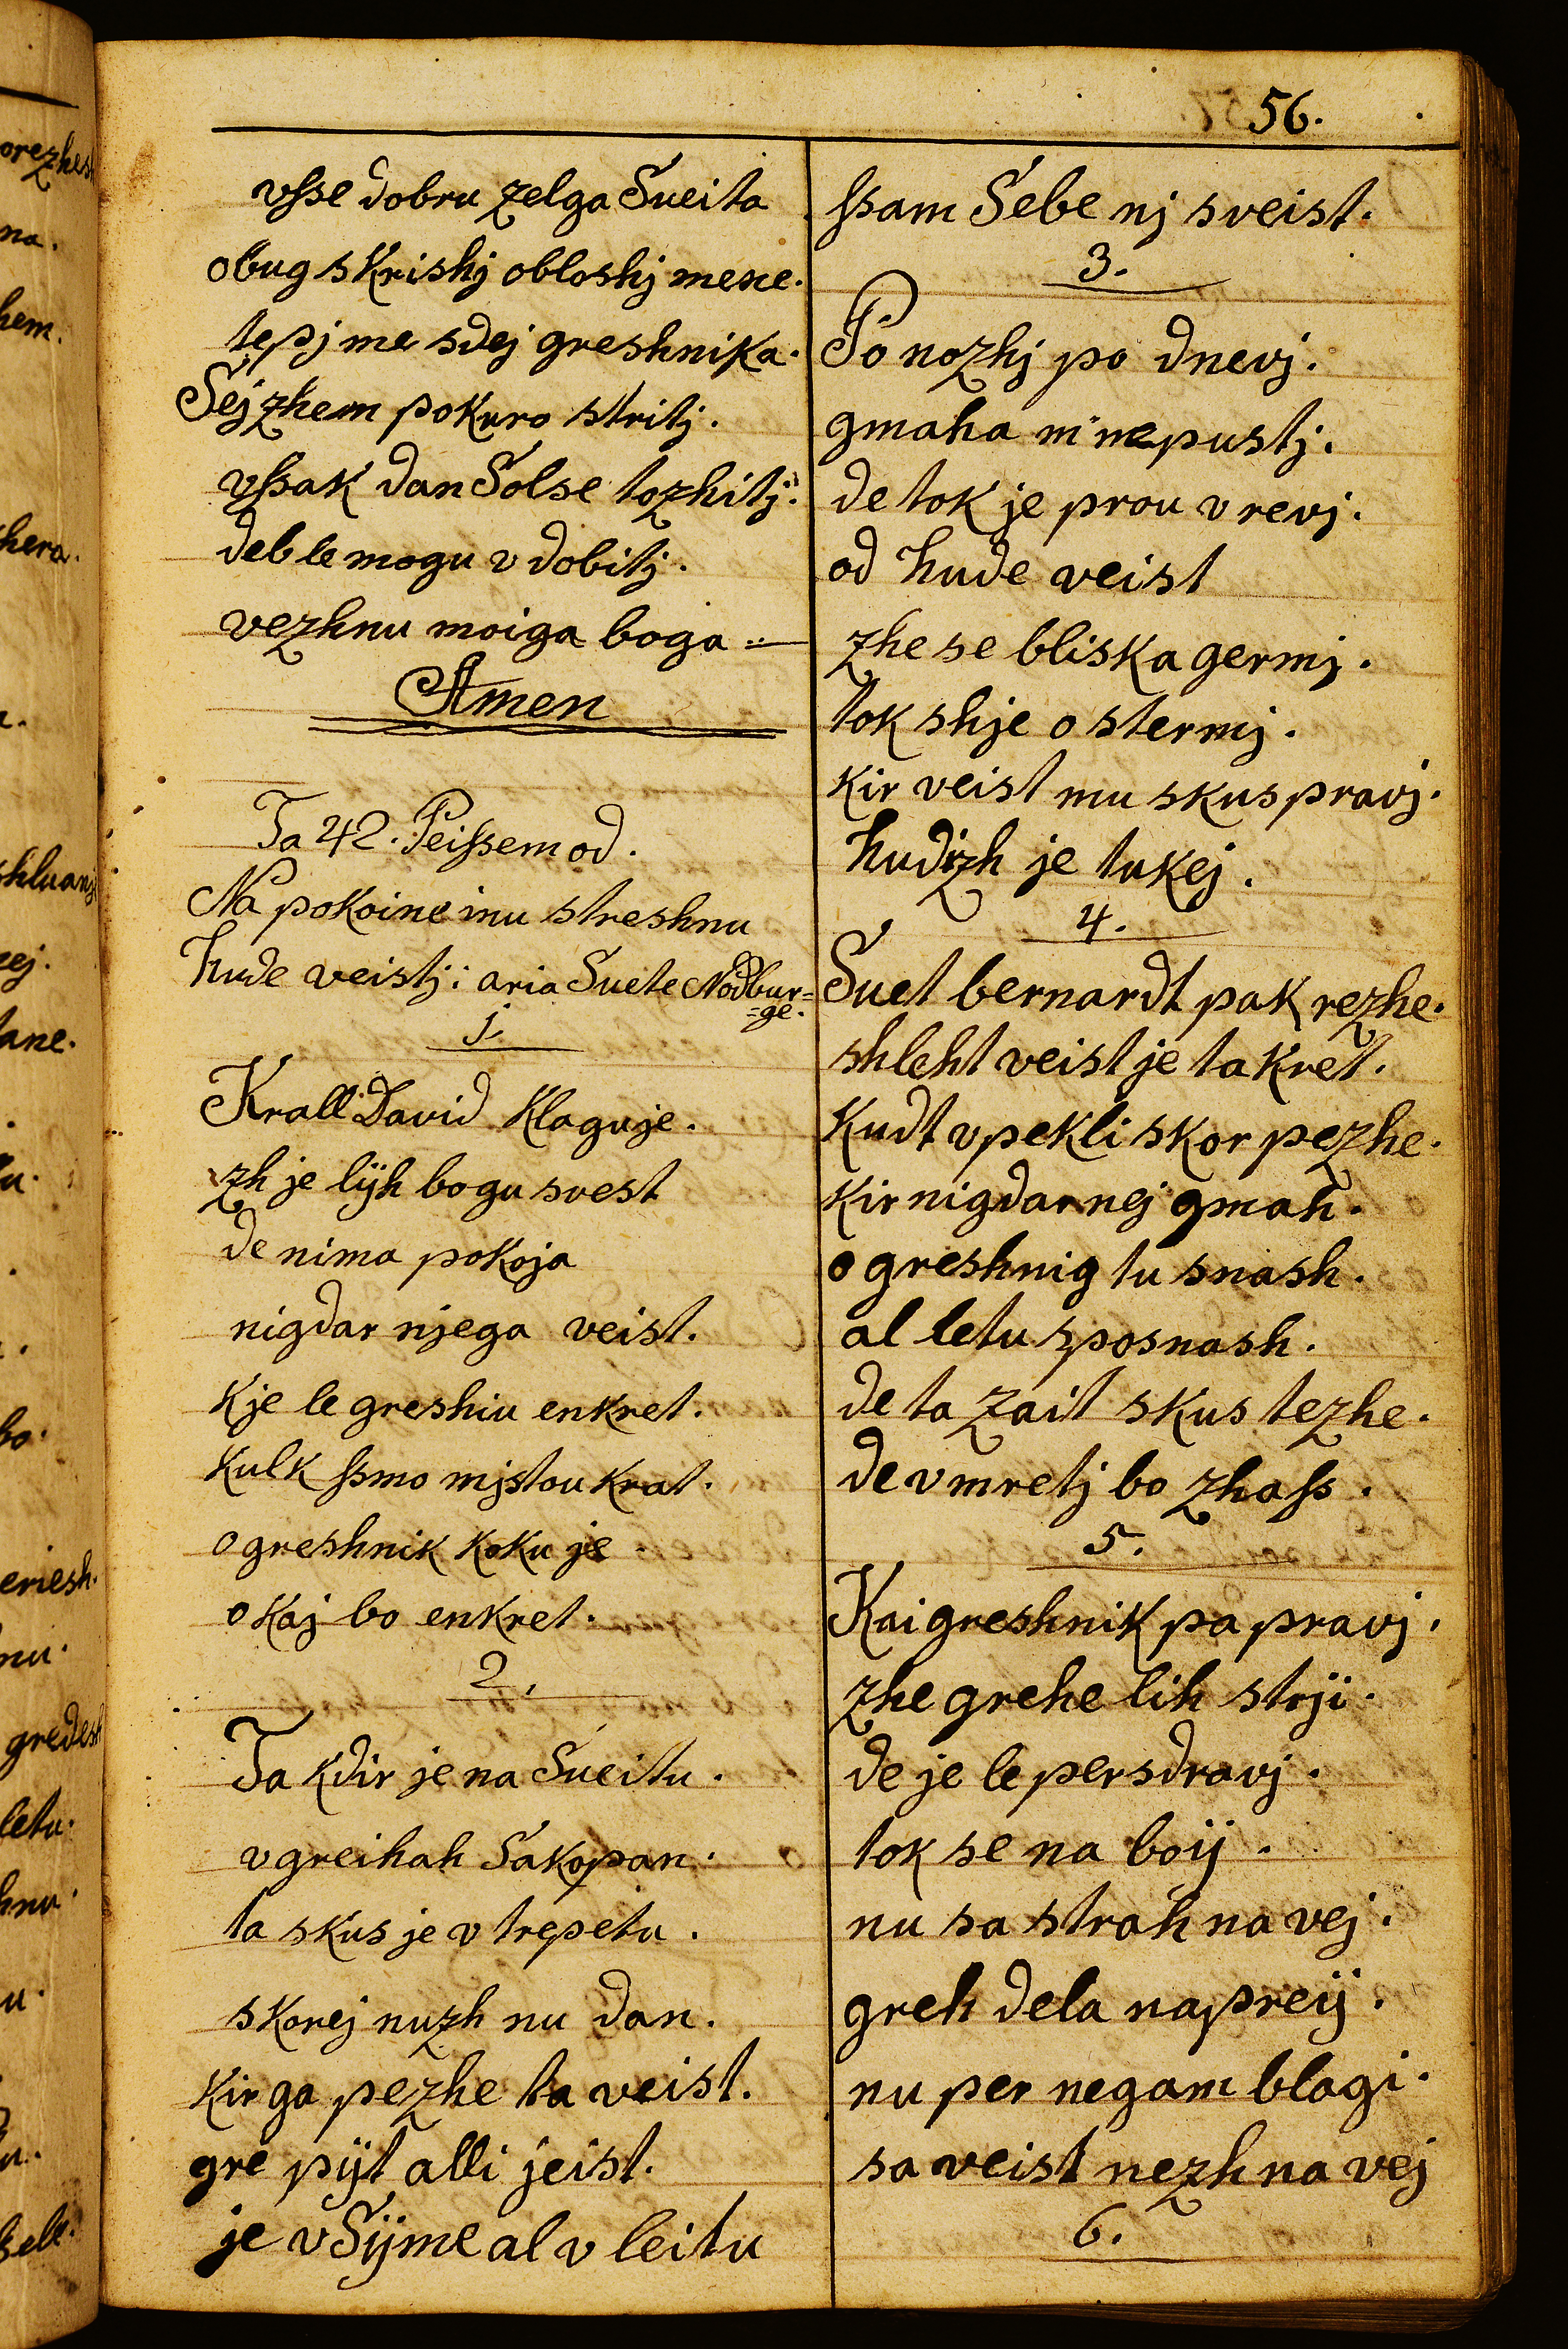 56.
vsse dobru zelga Sueita
obug skrishj obloshj mene.
tepj me sdej greshnika.
Sej zhem pokuro stritj.
vssak dan Solse tozhitj.
deb le mogu vdobitj.
vezhnu moiga boga
Amen
Ta 42. Peissem od.
Na pokoine inu streshnu
hude veistj: aria Suete Nodbur=
=ge.
1.
Krall David klaguje.
zh je lijh bogu svest
de nima pokoja
nigdar njega veist.
kje le greshiu enkret.
kulk ssmo mjstou krat.
o greshnik koku je
o kaj bo enkret.
2.
Ta kdir je na Sueitu.
v greihah Sakopan.
ta skus je v trepetu.
skorej nuzh nu dan.
kir ga pezhe ta veist.
gre pijt alli jeist.
je v Sijme al v leitu
ssam Sebe nj sveist.
3.
Po nozhj po dnevj.
gmaha m nepustj.
de tok je prou v revj.
od hude veist
zhe se bliska germj.
tok shje o stermj.
kir veist mu skus pravj.
hudizh je tukej.
4.
Suet bernardt pak rezhe.
shleht veist je ta kret.
kudt v pekli skor pezhe.
kir nigdar nej gmah.
o greshnig tu snash.
al letu sposnash.
de ta zait skus tezhe.
de vmretj bo zhass.
5.
Kai greshnik pa pravj.
zhe grehe lih strji.
de je le persdravj.
tok se na boij.
nu sa strah na vej.
greh dela napreij.
nu per negam blagi.
sa veist nezh na vej
6.